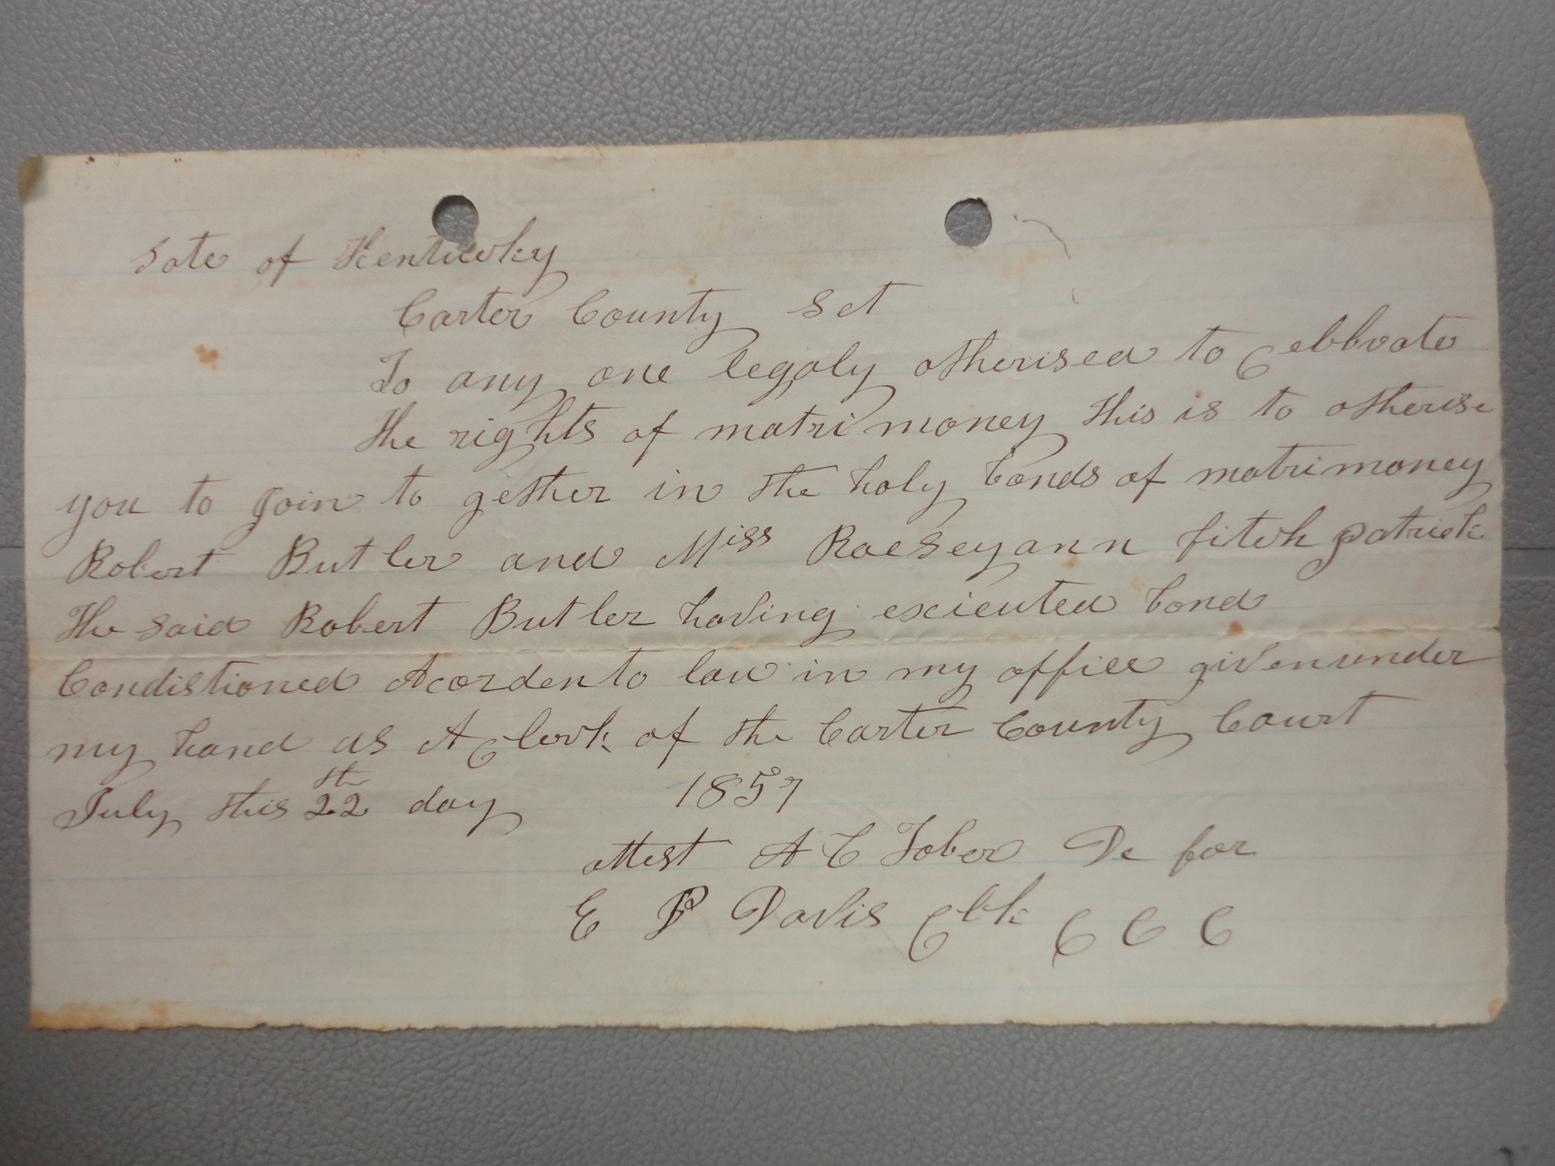 Sate of Kentucky
Carter County Sct
To any one legaly otherised to Celbrate
the rights of matrimoney this is to otherise
you to Join to gether in the holy bonds of matrimoney
Robert Butler and Miss Roeseyann fitchpatrick
The said Robert Butler having exicuted bond
Condistioned Acorden to law in my office given under
my hand as A Clerk of the Carter County Court
July this 22th day 1857
attest A C Tober De for
E P Davis Clk C C C